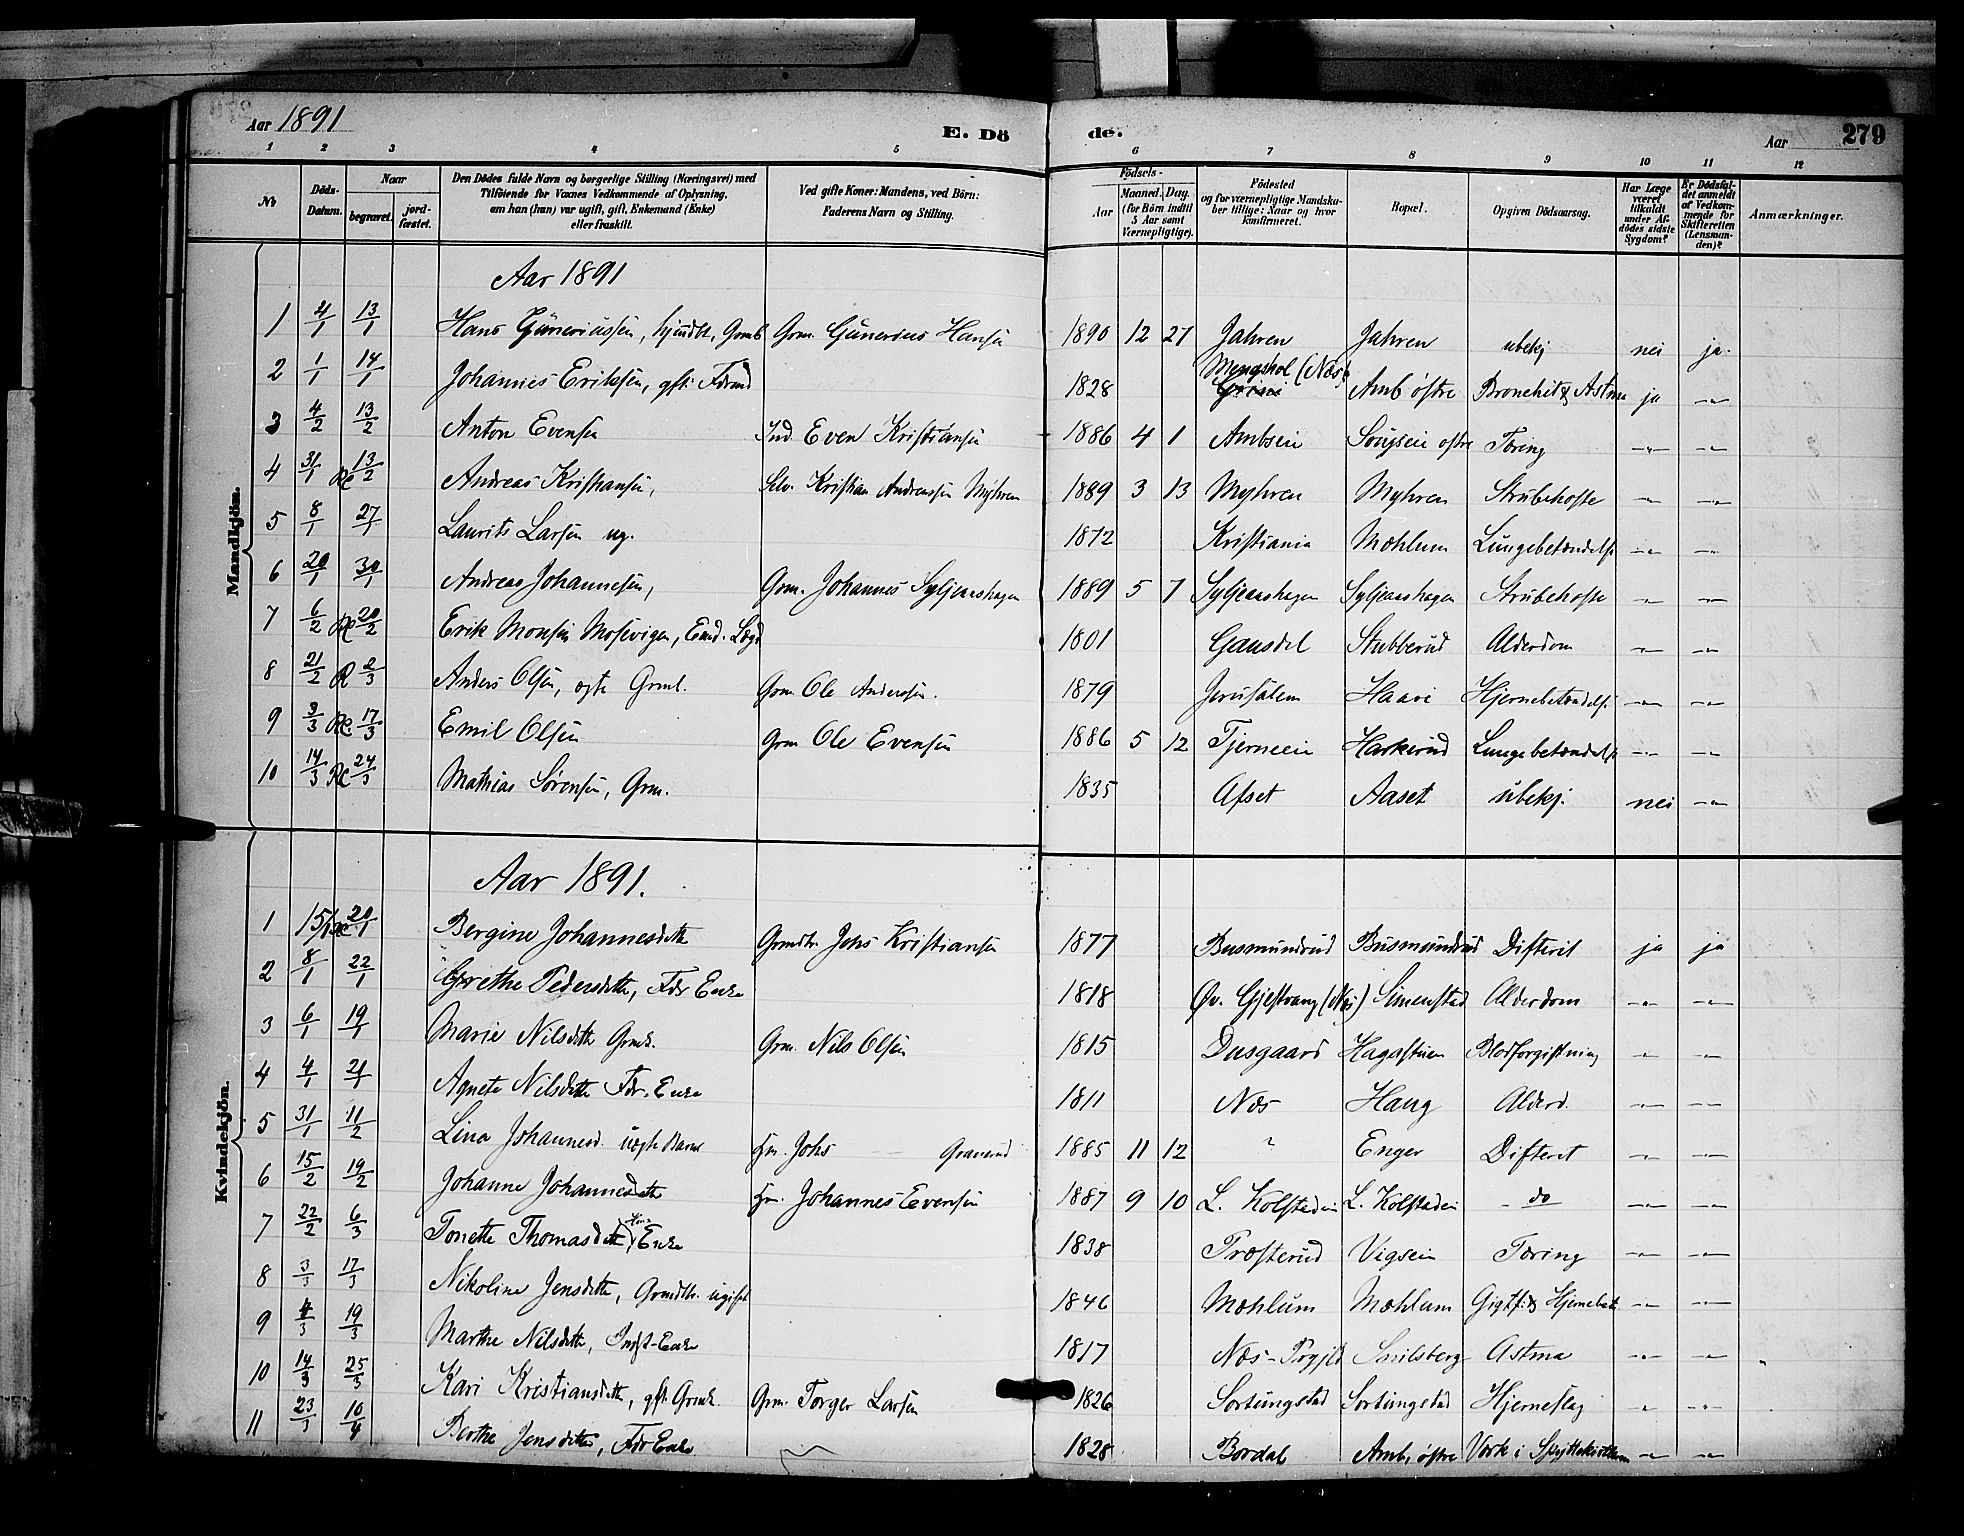 Aar 1891 E. Dö de. Aar 279
1 2 3 4 5 6 7 8 9 10 11 12
№ Döds-Datum. Naar begravet. jord-fæstet. Den Dödes fulde Navn og borgerlige Stilling (Næringsvei) med Tilföiende for Voxnes Vedkommende af Oplysning, om han (hun) var ugift, gift, Enkemand (Enke) eller fraskilt. Ved gifte Koner: Mandens, ved Börn: Faderens Navn og Stilling. Födsels- Aar Maaned. Dag. (for Börn indtil 5 Aar samt Værnepligtige). Födested og for værnepligtige Mandskaber tillige: Naar og hvor konfirmeret. Bopæl. Opgiven Dödsaarsag. Har Læge været tilkaldt under Afdödes sidste Sygdom? Er Dödsfaldet anmeldt af Vedkommende for Skifteretten (Lensmanden)? Anmærkninger.
Mandkjön.
Aar 1891
1 4/1 13/1 Hans Gunerius­sen, Grmb Grm. Gunerius Hansen 1890 12 27 Jahren Jahren ubekj nei ja.
2 1/1 14/1 Johannes Eriksen, gft. Fdrmd 1828 Mengshol (Næs) Amb østre Bronchit & Astma ja -"-
3 4/2 13/2 Anton Evensen Ind. Even Kristiansen 1886 4 1 Ambseie østre Tæring -"- -"-
4 31/1 R 13/2 Andreas Kristiansen, Selv. Kristian Andreassen Myhren 1889 3 13 Myhren Myhren Strubehoste -"- -"-
5 8/1 27/1 Laurits Larsen ug. 1872 Kristiania Mæhlum Lungebetændelse -"- -"-
6 20/1 30/1 Andreas Johannesen, Grm. Johannes Syljeaashagen 1889 5 7 Syljeaashagen Syljeaashagen Strubehoste -"- -"-
7 6/2 R 20/2 Erik Monsen Mosevigen, Emd. Lægd 1801 Gausdal Stubberud Alderdom -"- -"-
8 21/2 R 2/3 Anders Olsen, Grm. Ole Anderssen. 1879 Jerusalem Haave Hjernebetændelse -"- -"-
9 3/3 R 17/3 Emil Olsen Grm Ole Evensen 1886 5 12 Tjerneeie Harkerud Lungebetændelse -"- -"-
10 14/3 R 24/3 Mathias Sørensen, Grm. 1835 Afset Aaset ubekj. nei -"-
Kvindekjön.
Aar 1891.
1 15/1 20/1 Bergine Johannesdtr Grmdtr. Johs Kristiansen 1877 Busmundrud Busmundrud Difterit ja ja
2 8/1 22/1 Grethe Pedersdtr, Fdr Enke 1818 Øv. Gjestvang (Næs) Simenstad Alderdom -"- -"-
3 6/1 19/1 Marie Nilsdtr Grmk. Grm. Nils Olsen 1815 Dusgaard Hagastuen Blodforgiftning -"- -"-
4 4/1 21/1 Agnete Nilsdtr Fdr. Enke 1811 Næs Haug Alderd. -"- -"-
5 31/1 11/2 Lina Johannesd. uægte Barn Johs Graverud 1885 11 12 " Enger Difterit -"- -"-
6 15/2 19/2 Johanne Johannesdtr Johannes Evensen 1887 9 10 L. Kolstadeie L. Kolstadeie do -"- -"-
7 22/2 6/3 Tonette Thomasdtr Enke 1838 Træsterud Vigseie Tæring -"- -"-
8 3/3 17/3 Nikoline Jensdtr, Grmdtr. ugift 1846 Mæhlum Mæhlum Gigtf. & Hjernebet -"- -"-
9 4/3 19/3 Marthe Nilsdtr, Indst-Enke 1817 Næs-Prgjld Smilsberg Astma -"- -"-
10 14/3 25/3 Kari Kristiansdtr, gft. Grmk. Grm. Torger Larsen 1826 Sortungstad Sortungstad Hjerneslag " -"-
11 23/3 10/4 Berthe Jensdtr, Fdr Enke 1828 Bordal Amb, østre Værk i Spyttekirtlerne -"- -"-